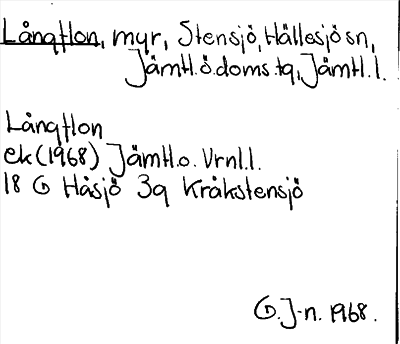 Långflon, myr, Stensjö, Hällesjö sn,
Jämtl.ö.doms.tg, Jämtl.l.
Långflon
ek (1968) Jämtl.o. Vrnl.l.
18 G Håsjö 3g Kråkstensjö
G.J-n. 1968.